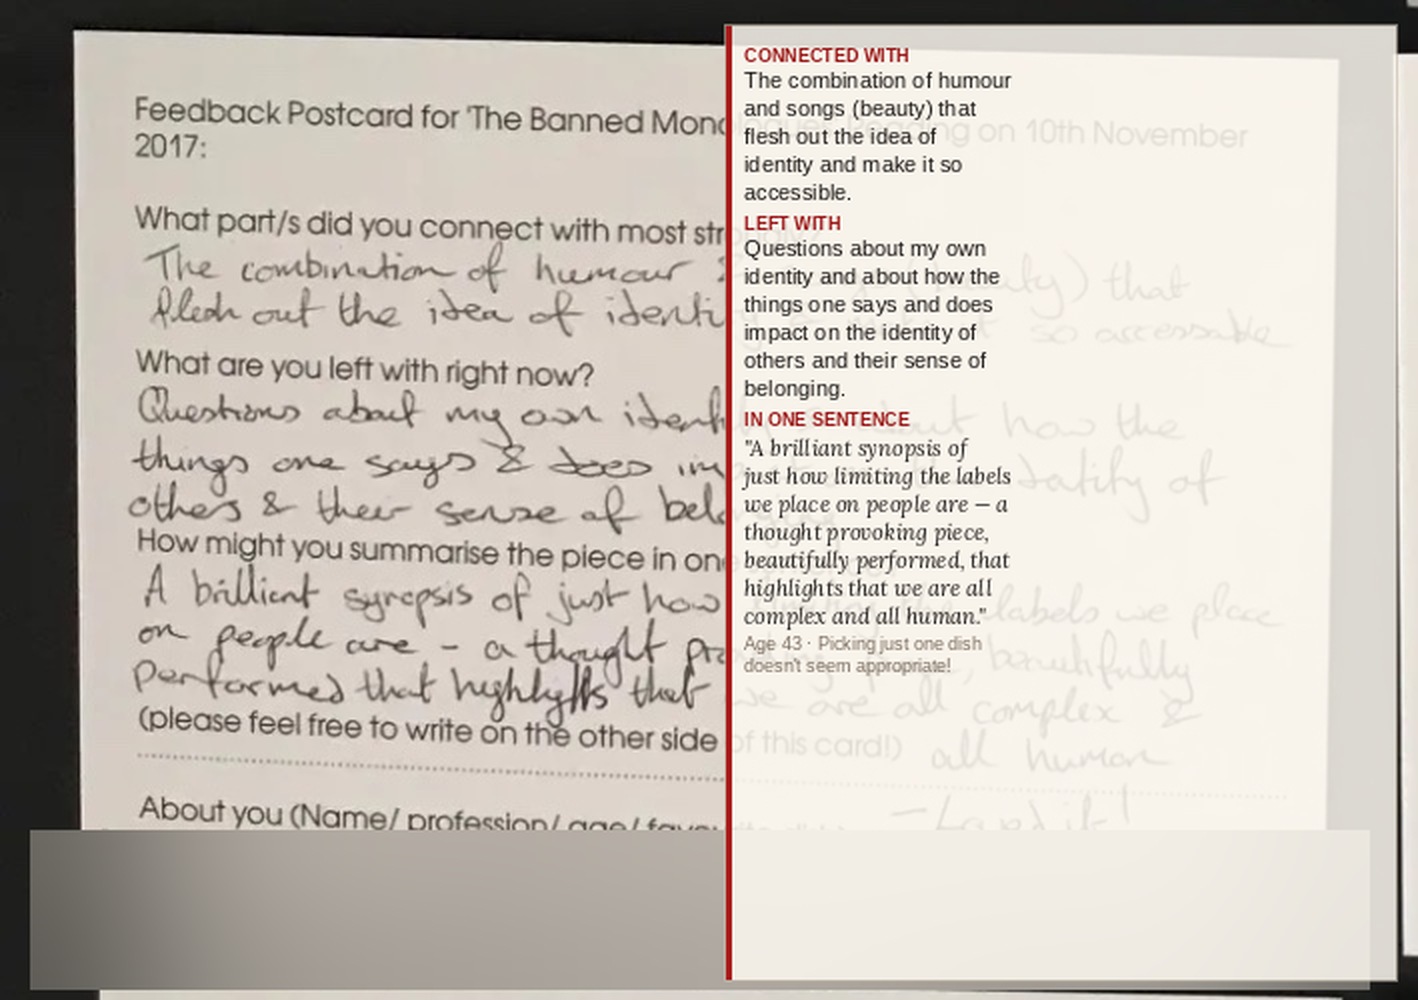 Feedback Postcard for 'The Banned Monologues' Reading on 10th November
2017:
What part/s did you connect with most strongly?
The combination of humour & songs (beauty) that
flesh out the idea of identity & make it so accessable
What are you left with right now?
Questions about my own identity & about how the
things one says & does impact on the identity of
others & their sense of belonging
How might you summarise the piece in one
A brilliant synopsis of just how limiting the labels we place
on people are - a thought provoking piece, beautifully
performed that highlights that we are all complex &
all human
(please feel free to write on the other side of this card!)
- Loved it!
About you (Name/ profession/ age/ favourite dish)
CONNECTED WITH
The combination of humour
and songs (beauty) that
flesh out the idea of
identity and make it so
accessible.
LEFT WITH
Questions about my own
identity and about how the
things one says and does
impact on the identity of
others and their sense of
belonging.
IN ONE SENTENCE
"A brilliant synopsis of
just how limiting the labels
we place on people are — a
thought provoking piece,
beautifully performed, that
highlights that we are all
complex and all human."
Age 43 · Picking just one dish
doesn't seem appropriate!